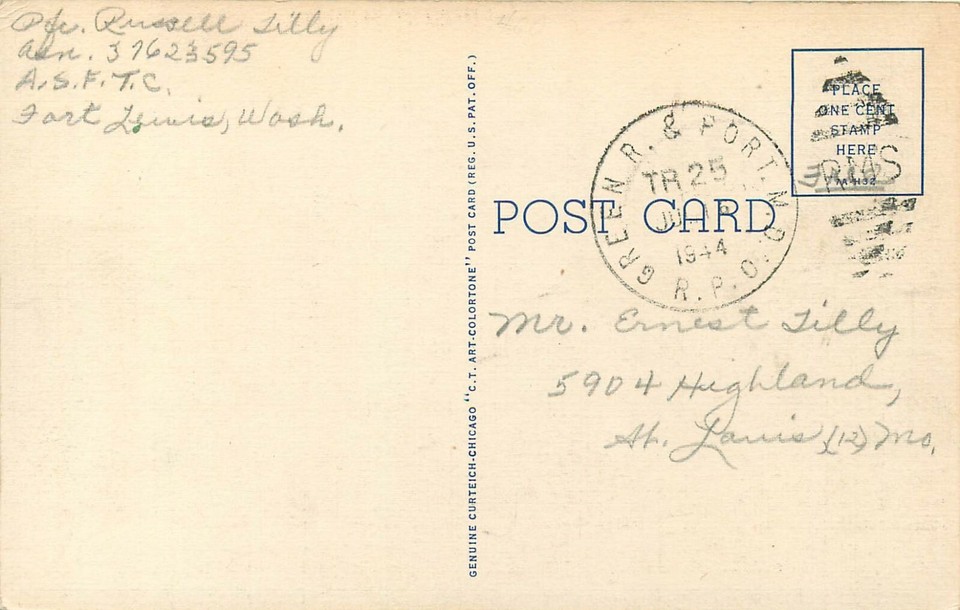 Pfc. Russell Tilly
Asn. 37623595
A.S.F.T.C.
Fort Lewis, Wash.
GENUINE CURTEICH-CHICAGO "C.T. ART-COLORTONE" POST CARD (REG. U.S. PAT. OFF.)
POST CARD
GREEN R. & PORT. M.D.
TR 25
1944
R.P.O.
PLACE
ONE CENT
STAMP
HERE
RMS
Mr. Ernest Tilly
5904 Highland,
St. Louis (12) Mo.